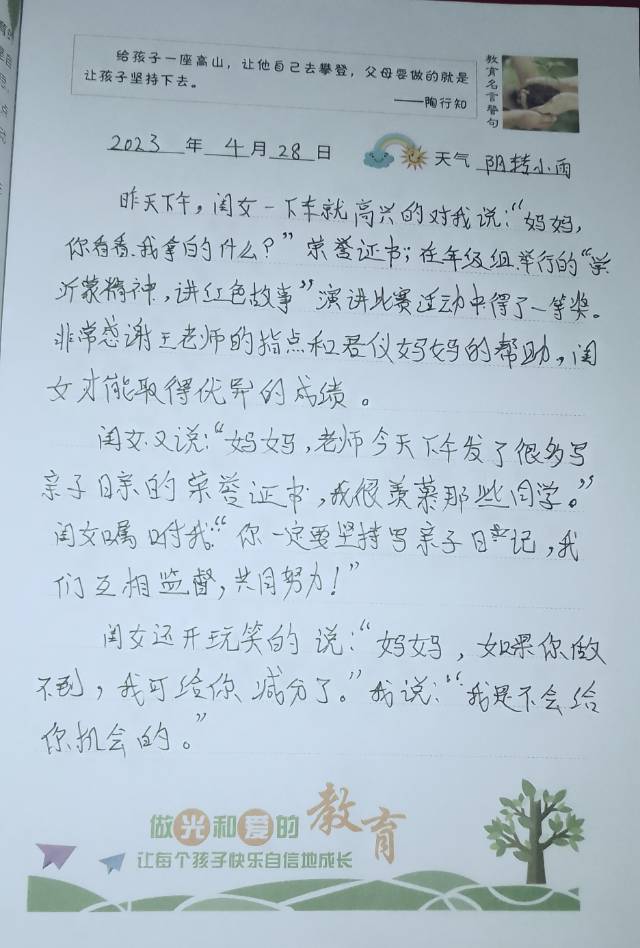 给孩子一座高山，让他自己去攀登，父母要做的就是
让孩子坚持下去。
——陶行知
教育名言警句
2023年4月28日 天气 阴转小雨
昨天下午，闺女一下车就高兴的对我说：“妈妈，
你看看，我拿的什么？”荣誉证书；在年级组举行的“学
沂蒙精神，讲红色故事”演讲比赛活动中得了一等奖。
非常感谢王老师的指点和君仪妈妈的帮助，闺
女才能取得优异的成绩。
闺女又说：“妈妈，老师今天下午发了很多写
亲子日亲的荣誉证书，我很羡慕那些同学。”
闺女嘱咐我：“你一定要坚持写亲子日记，我
们互相监督，共同努力！”
闺女还开玩笑的说：“妈妈，如果你做
不到，我可给你减分了。”我说：“我是不会给
你机会的。”
做光和爱的教育
让每个孩子快乐自信地成长